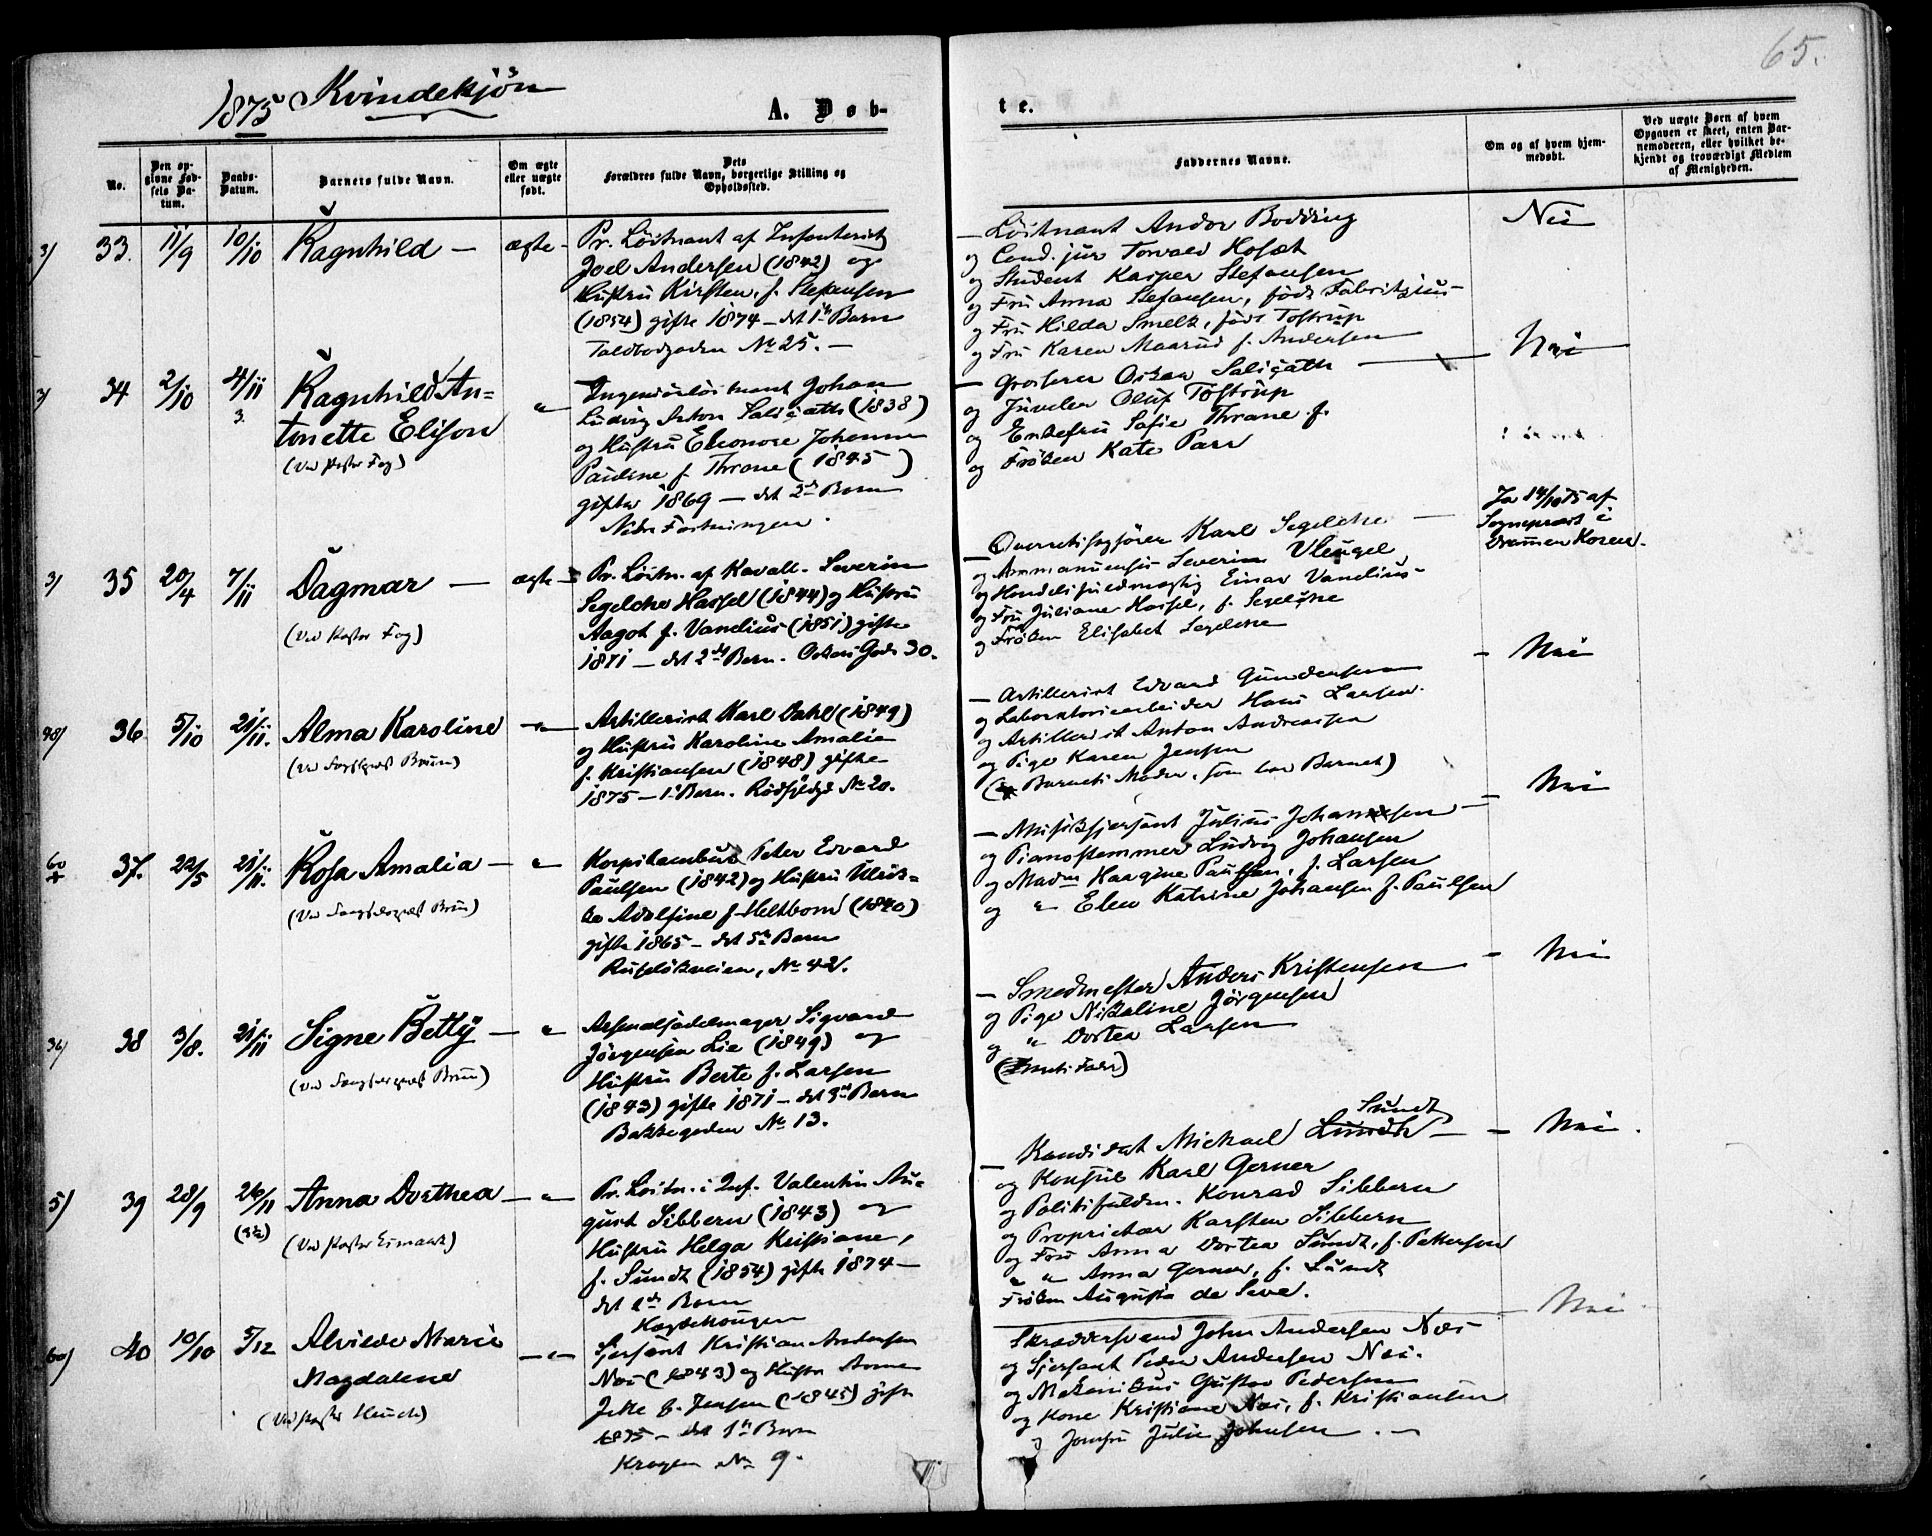 65.
1875 Kvindekjön
A. Döb-
te.
No.
Den opgivne Fødsels Datum.
Daabs-Datum.
Barnets fulde Navn.
Om ægte eller uægte født.
Dets Forældres fulde Navn, borgerlige Stilling og Opholdssted.
Faddernes Navne.
Om og af hvem hjemmedøbt.
Ved uægte Børn af hvem Opgaven er skeet, enten Barnemoderen, eller hvilket bekjendt og troværdigt Medlem af Menigheden.
3/ 33. 11/9 10/10 Ragnhild — ægte -
Pr. Löitnant af Infanteriet
Joel Andersen (1842) og
Hustru Kirsten, f. Stefansen
(1854) gifte 1874 - det 1ste Barn
Toldbodgaden No 25. -
- Löitnant Andor Bodding
og Cand. jur Torvald Hofæt
og Student Kasper Stefansen
og Fru Anna Stefansen, född Fabritzius -
og Fru Hilda Smelt, född Tostrup
og Fru Karen Maarud f. Andersen
Nei
3/ 34 2/10 4/11 3. Ragnhild An=
tonette Elison
(Ved Pastor Fog)
Ingeniörlöitnant Johan
Ludvig Anton Salicath (1838)
og Hustru Eleonore Johanne
Pauline f. Thrane (1845)
gifte 1869 - det 2det Barn
Nedre Fæstningen.
- Grosserer Oskar Salicath
og Juveler Oluf Tostrup
og Enkefru Sofie Thrane f.
og Fröken Kate Parr
Nei
3/ 35 20/4 7/11 Dagmar — ægte -
(Ved Pastor Fog)
Pr. Löitn. af Kavall. Severin
Segelcke Hassel (1844) og Hustru
Aagot f. Vandius (1851) gifte
1871 - det 2det Barn. Oskars Gade 30.
- Overretssagförer Karl Segelcke
og Ammanuensis Severin Vleugel
og Handelsfuldmægtig Einar Vandius -
og Fru Juliane Hassel, f. Segelcke
og Fröken Elisabet Segelcke
Ja 14/10 75 af
Sogneprest i
Drammen Koren.
48/ 36 5/10 21/11. Alma Karoline
(Ved Fængselsprest Bruun)
Artillerist Karl Dahl (1849)
og Hustru Karoline Amalie
f. Kristiansen (1848) gifte
1875 - 1ste Barn. Rödfyldgd No 20.
- Artillerist Edvard Gundersen
og Laboratoriearbeider Hans Larsen.
og Artillerist Anton Andreassen
og Pige Karen Jensen
(og Barnets Moder, som bar Barnet)
Nei
60 + 37. 22/5 21/11. Rosa Amalia —
(Ved Fængselsprest Bruun)
Korpstambur Peter Edvard
Paulsen (1842) og Hustru Ulrik=
ke Adolfine f. Heltbom (1840)
gifte 1865 - det 5te Barn
Ruselökveien, No 42.
- Musiksjersjant Julius Johannesen
og Pianostemmer Ludvig Johansen
og Madm Haagine Paulsen, f. Larsen
og " Elen Katrine Johansen f. Paulsen
Nei
36/ 38 3/8. 21/11 Signe Betty —
(Ved Fængselsprest Bruun)
Arsenalsadelmager Sigvard
Jörgensen Lie (1849) og
Hustru Berte f. Larsen
(1843) gifte 1871 - det 3die Barn
Bakkegaden No 13.
- Smedmester Anders Kristensen
og Pige Nikoline Jörgensen
og " Dortea Larsen
Nei
5/ 39 28/9 26/11 Anna Dorthea —
(Ved Pastor Esmark)
Pr. Löitn. i Inf. Valentin Au=
gust Sibbern (1843) og
Hustru Helga Kristiane,
f. Sundt (1854) gifte 1874 -
det 2det Barn
Hægdehougen
Sundt
- Kandidat Michael Lundh
og Konsul Karl Gerner
og Politifuldm. Konrad Sibbern
og Proprietær Karsten Sibbern
og Fru Anna Dortea Sundt, f. Petterson
" " Anna Gerner, f. Sundt
Fröken Augusta de Seve.
Nei.
60/ 40 10/10 5/12 Alvilde Marie
Magdalene
(Ved Pastor Heuch)
Sjersjant Kristian Andersen
Næs (1843) og Hustru Anne
Jette f. Jensen (1845) gifte
1875 - det 1ste Barn
Krogen No 9.
Skræddersvend John Andersen Næs
og Sjersjant Peder Andersen Næs.
og Mekanikus Gustav Pedersen
og Kone Kristiane Næs, f. Kristiansen
og Jomfru Julie Johnsen.
Nei